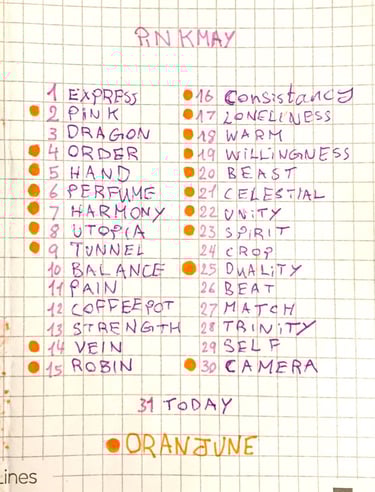 PINKMAY
1 EXPRESS
2 PINK
3 DRAGON
4 ORDER
5 HAND
6 PERFUME
7 HARMONY
8 UTOPIA
9 TUNNEL
10 BALANCE
11 PAIN
12 COFFEEPOT
13 STRENGTH
14 VEIN
15 ROBIN
16 Consistancy
17 LONELINESS
18 WARM
19 WILLINGNESS
20 BEAST
21 CELESTIAL
22 UNITY
23 SPIRIT
24 CROP
25 DUALITY
26 BEAT
27 MATCH
28 TRINITY
29 SELF
30 CAMERA
31 TODAY
ORANJUNE
Lines